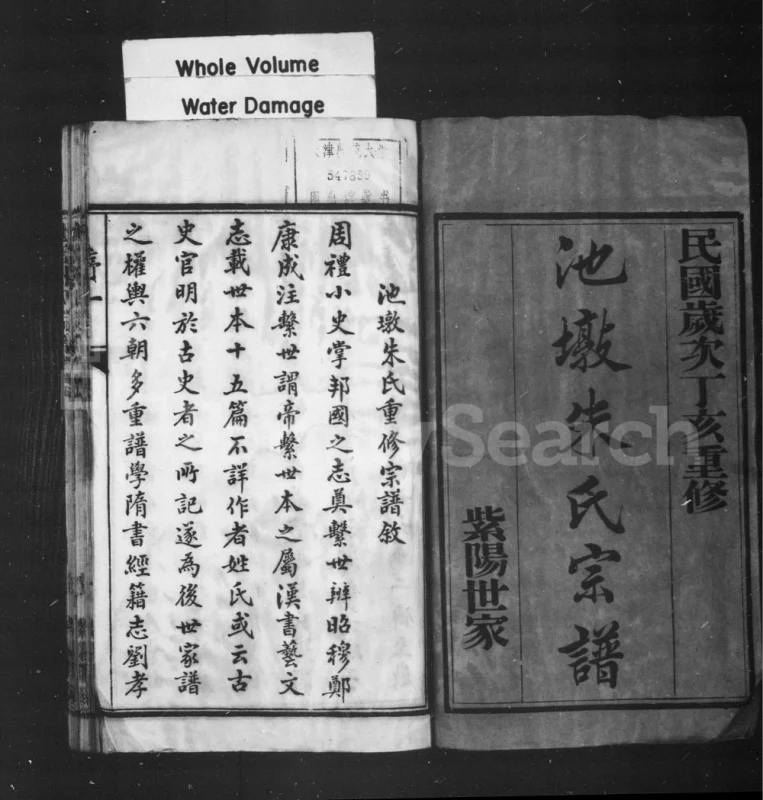 Whole Volume
Water Damage
民國歲次丁亥重修
池墩朱氏宗譜
紫陽世家
547899
池墩朱氏重修宗譜敘
周禮小史掌邦國之志奠繫世辨昭穆鄭
康成注繫世謂帝繫世本之屬漢書藝文
志載世本十五篇不詳作者姓氏或云古
史官明於古史者之所記遂為後世家譜
之權輿六朝多重譜學隋書經籍志劉孝
序一